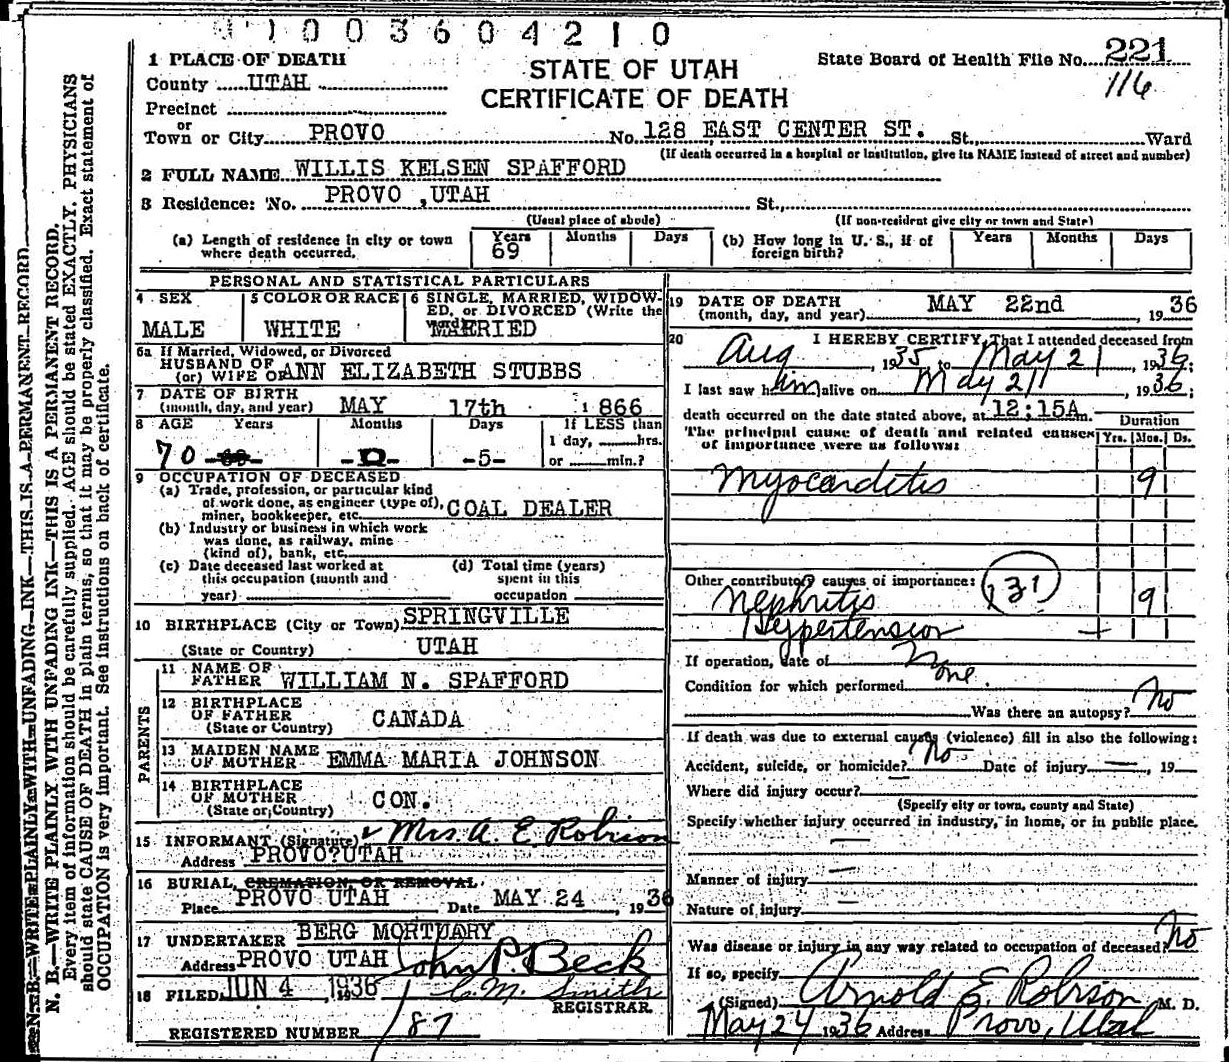 1 0 0 3 6 0 4 2 1 0
STATE OF UTAH
CERTIFICATE OF DEATH
State Board of Health File No. 221
116
1 PLACE OF DEATH
County UTAH
Precinct
or
Town or City PROVO No. 128 EAST CENTER ST. St., Ward
(If death occurred in a hospital or institution, give its NAME instead of street and number)
2 FULL NAME WILLIS KELSEN SPAFFORD
3 Residence: No. PROVO ,UTAH St.,
(Usual place of abode) (If non-resident give city or town and State)
(a) Length of residence in city or town where death occurred. Years 69 Months Days
(b) How long in U. S., if of foreign birth? Years Months Days
PERSONAL AND STATISTICAL PARTICULARS
4 SEX
MALE
5 COLOR OR RACE
WHITE
6 SINGLE, MARRIED, WIDOW-
ED, or DIVORCED (Write the
MARRIED
6a If Married, Widowed, or Divorced
HUSBAND OF
(or) WIFE OF ANN ELIZABETH STUBBS
7 DATE OF BIRTH
(month, day, and year) MAY 17th 1866
8 AGE Years Months Days If LESS than
1 day, hrs.
70 -0- -5- or min.?
9 OCCUPATION OF DECEASED
(a) Trade, profession, or particular kind
of work done, as engineer (type of),
miner, bookkeeper, etc. COAL DEALER
(b) Industry or business in which work
was done, as railway, mine
(kind of), bank, etc.
(c) Date deceased last worked at
this occupation (month and
year)
(d) Total time (years)
spent in this
occupation
10 BIRTHPLACE (City or Town) SPRINGVILLE
(State or Country) UTAH
PARENTS
11 NAME OF
FATHER WILLIAM N. SPAFFORD
12 BIRTHPLACE
OF FATHER CANADA
(State or Country)
13 MAIDEN NAME
OF MOTHER EMMA MARIA JOHNSON
14 BIRTHPLACE
OF MOTHER CON.
(State or Country)
15 INFORMANT (Signature) Mrs. A. E. Robison
Address PROVO?UTAH
16 BURIAL, CREMATION, OR REMOVAL
Place PROVO UTAH Date MAY 24 , 1936
17 UNDERTAKER BERG MORTUARY
Address PROVO UTAH John P. Beck
18 FILED JUN 4 1936 C. M. Smith
REGISTRAR
REGISTERED NUMBER 187
19 DATE OF DEATH
(month, day, and year) MAY 22nd 1936
20 I HEREBY CERTIFY, That I attended deceased from
Aug , 1935 to May 21 , 1936;
I last saw him alive on May 21 , 1936;
death occurred on the date stated above, at 12:15A m.
Duration
The principal cause of death and related causes Yrs. Mos. Ds.
of importance were as follows:
Myocarditis 9
Other contributory causes of importance: 131
Nephritis 9
Hypertension
If operation, date of None.
Condition for which performed
Was there an autopsy? No
If death was due to external causes (violence) fill in also the following:
Accident, suicide, or homicide? No Date of injury , 19
Where did injury occur?
(Specify city or town, county and State)
Specify whether injury occurred in industry, in home, or in public place.
Manner of injury
Nature of injury
Was disease or injury in any way related to occupation of deceased? No
If so, specify
(Signed) Arnold E. Robison M. D.
May 24 1936 Address Provo, Utah
N. B.—WRITE PLAINLY WITH UNFADING INK—THIS IS A PERMANENT RECORD
N. B.—WRITE PLAINLY WITH UNFADING INK—THIS IS A PERMANENT RECORD.
Every item of information should be carefully supplied. AGE should be stated EXACTLY. PHYSICIANS
should state CAUSE OF DEATH in plain terms, so that it may be properly classified. Exact statement of
OCCUPATION is very important. See instructions on back of certificate.